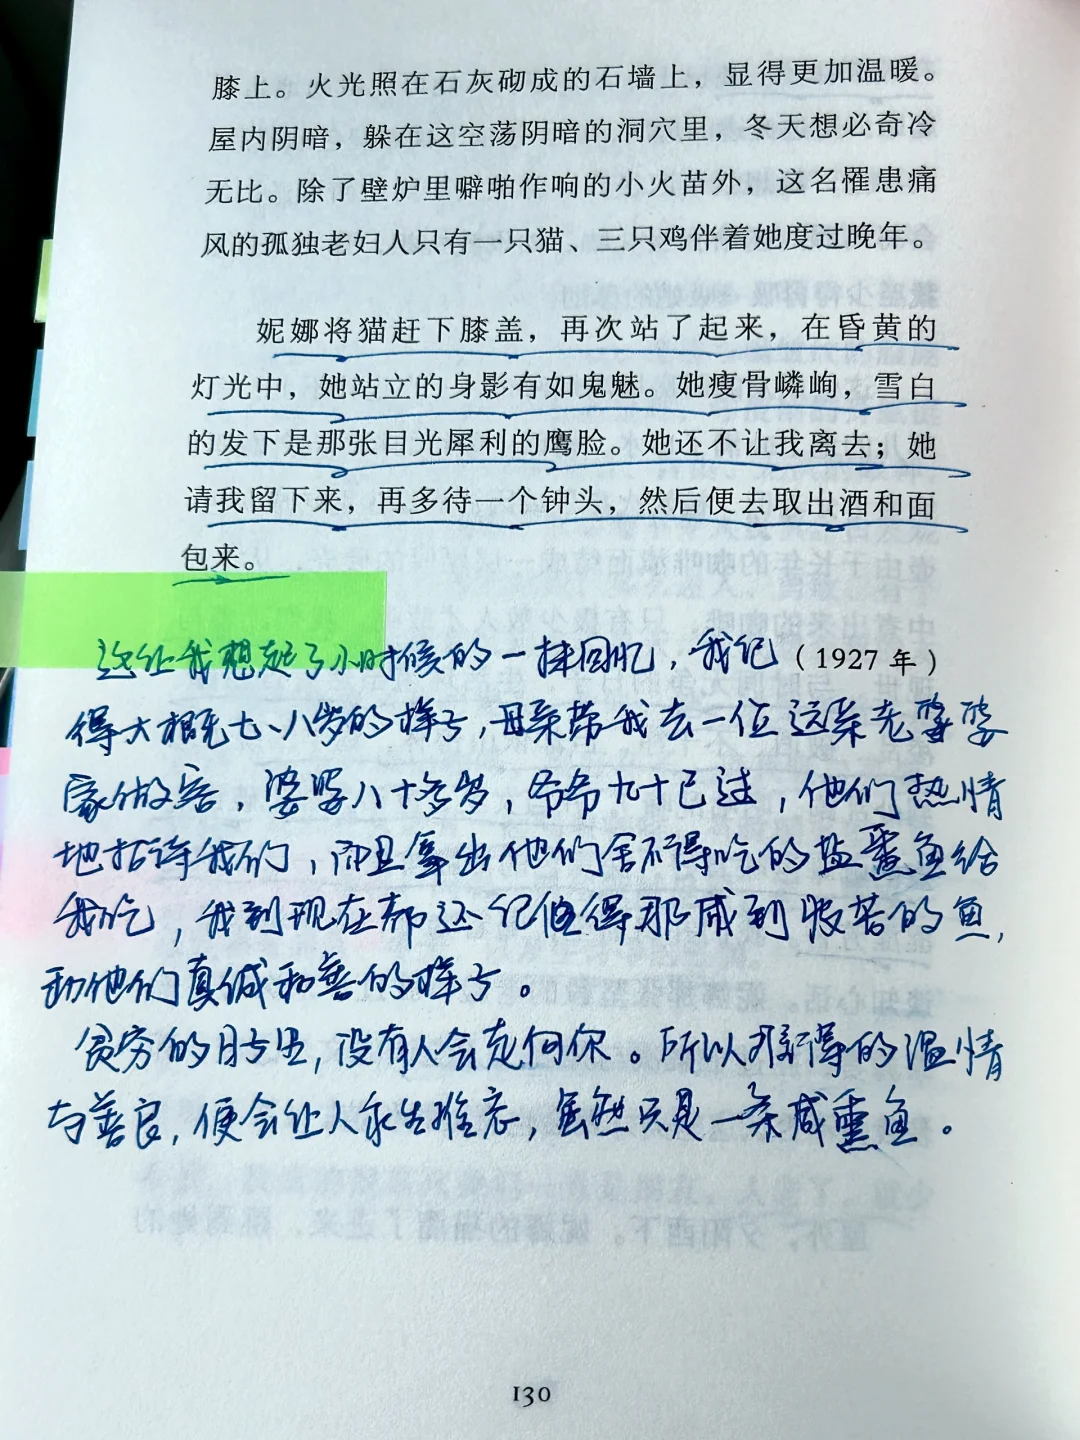 膝上。火光照在石灰砌成的石墙上，显得更加温暖。
屋内阴暗，躲在这空荡阴暗的洞穴里，冬天想必奇冷
无比。除了壁炉里噼啪作响的小火苗外，这名罹患痛
风的孤独老妇人只有一只猫、三只鸡伴着她度过晚年。
妮娜将猫赶下膝盖，再次站了起来，在昏黄的
灯光中，她站立的身影有如鬼魅。她瘦骨嶙峋，雪白
的发下是那张目光犀利的鹰脸。她还不让我离去；她
请我留下来，再多待一个钟头，然后便去取出酒和面
包来。
这让我想起了小时候的一抹回忆，我记（1927 年）
得大概七、八岁的样子，母亲带我去一位远亲老婆婆
家做客，婆婆八十多岁，爷爷九十已过，他们热情
地招待我们，而且拿出他们舍不得吃的盐熏鱼给
我吃，我到现在都还记得那咸到发苦的鱼，
和他们真诚和善的样子。
贫穷的日子里，没有人会走向你。所以难得的温情
与善良，便会让人永生难忘，虽然只是一条咸熏鱼。
130